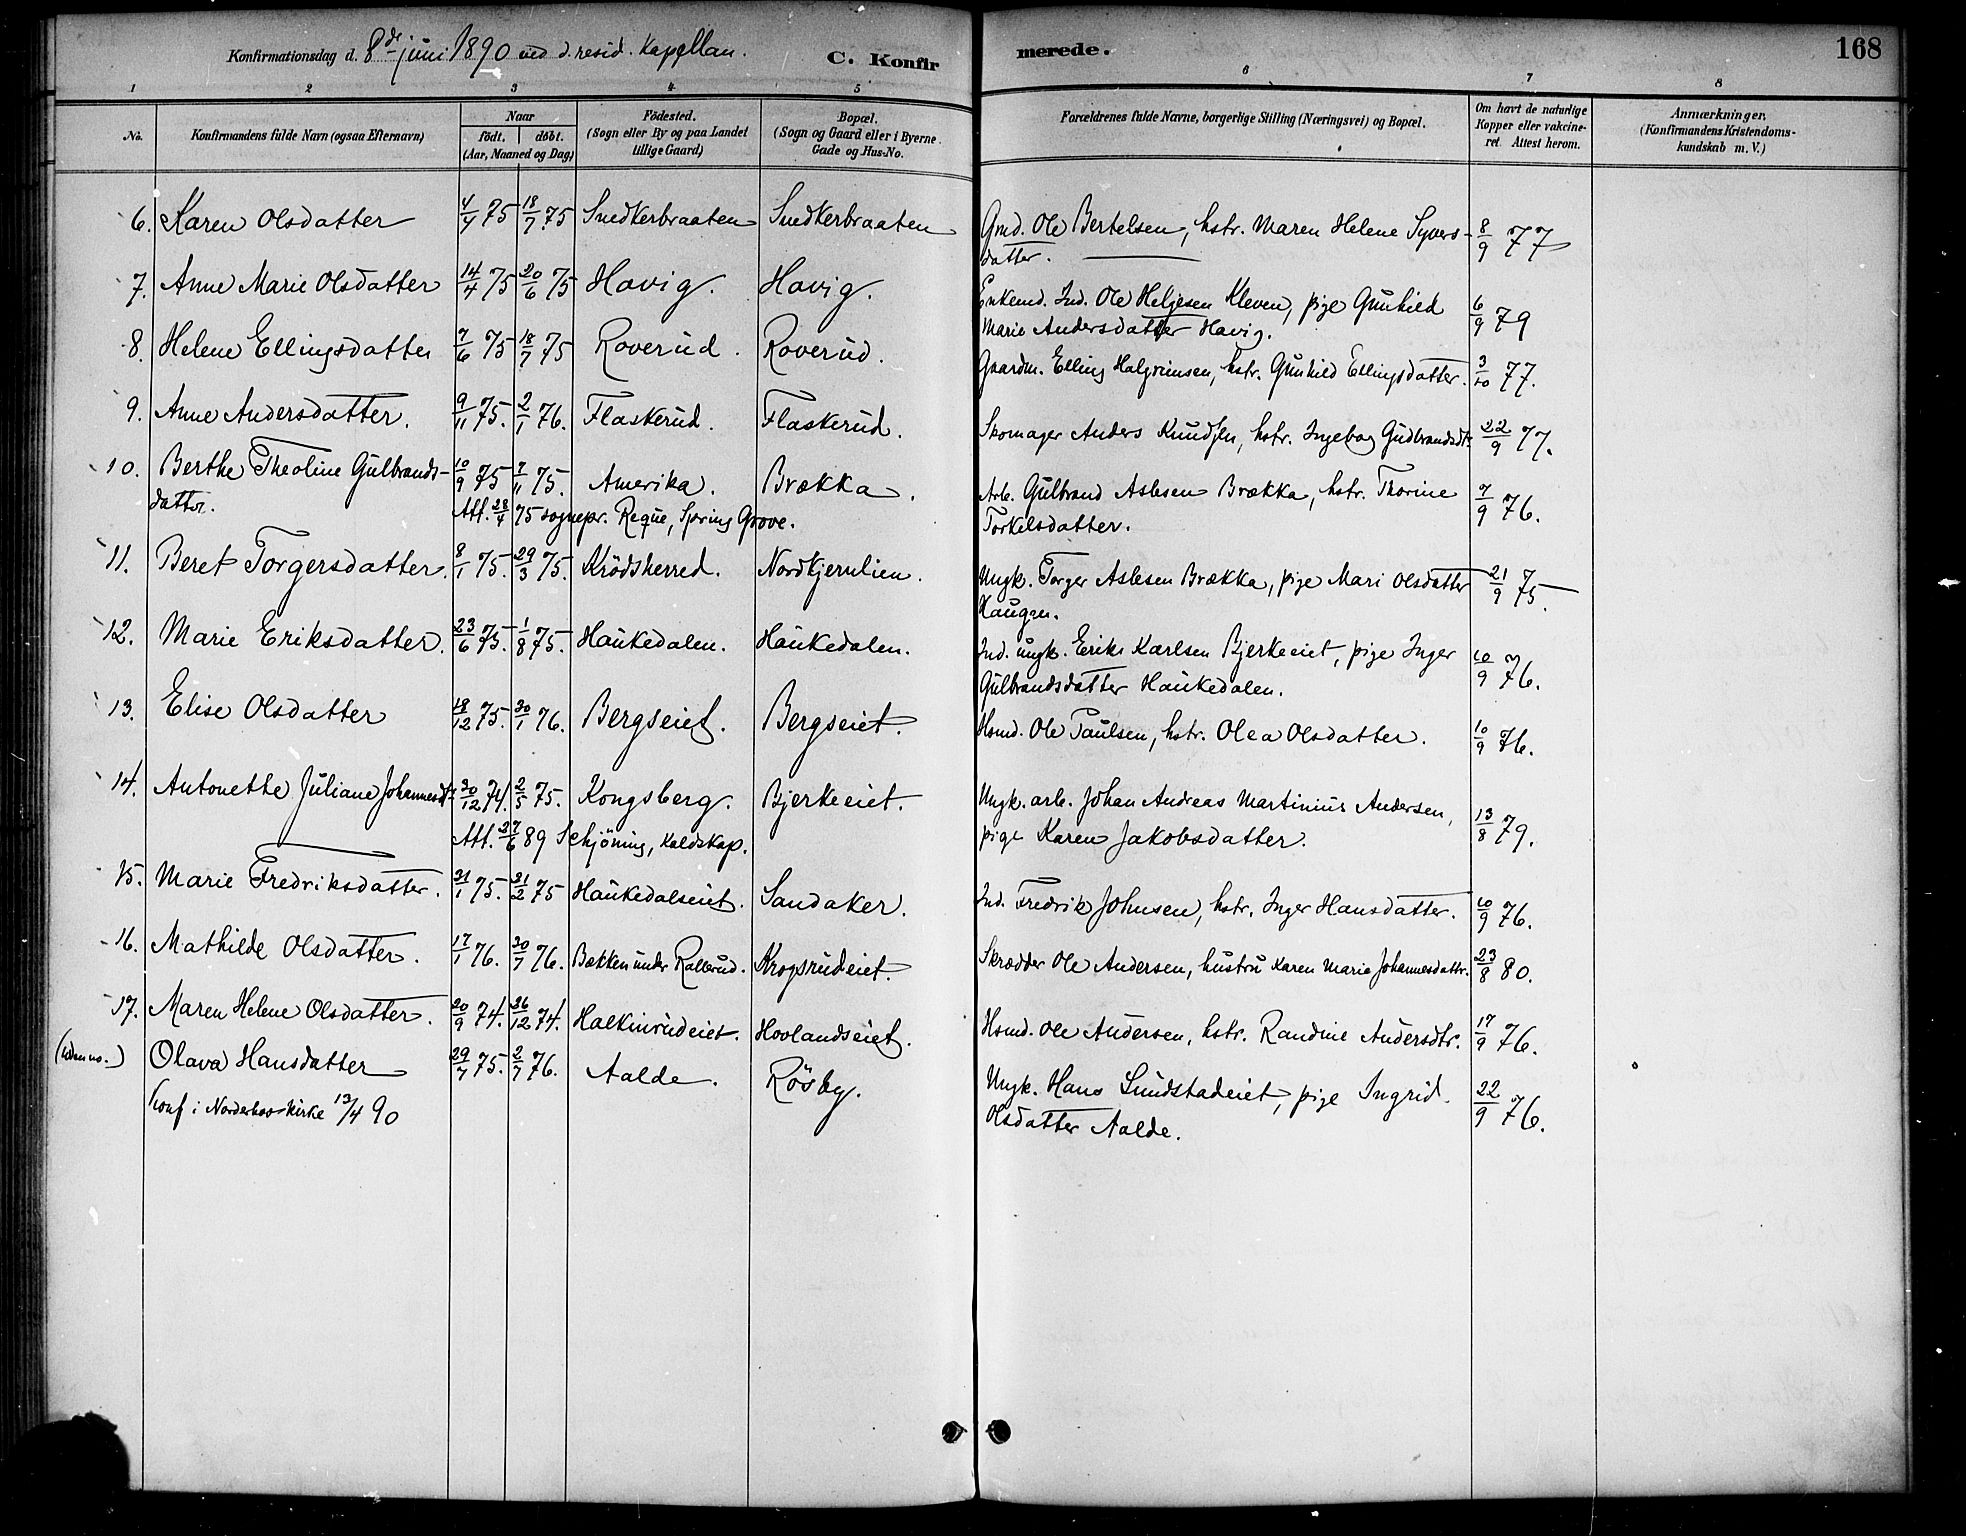 Konfirmationsdag d. 8de juni 1890 ved d. resid. Kapellan.
C. Konfirmerede.
168
1 2 3 4 5 6 7 8
No. Konfirmandens fulde Navn (ogsaa Efternavn)
Naar
födt. döbt.
(Aar, Maaned og Dag)
Födested.
(Sogn eller By og paa Landet
tillige Gaard)
Bopæl.
(Sogn og Gaard eller i Byerne
Gade og Hus-No.
Forældrenes fulde Navne, borgerlige Stilling (Næringsvei) og Bopæl.
Om havt de naturlige
Kopper eller vakcine-
ret. Attest herom.
Anmærkninger.
(Konfirmandens Kristendoms-
kundskab m. V.)
6. Karen Olsdatter 4/4 75 18/7 75 Snedkerbraaten Snedkerbraaten Gmd. Ole Bertelsen, hstr. Maren Helene Syvers- 8/9 77
datter.
7. Anne Marie Olsdatter 14/4 75 20/6 75 Havig. Havig. Enkemd. Ind. Ole Helgesen Kleven, pige Gunhild 6/9 79
Marie Andersdatter Havig.
8. Helene Ellingsdatter 7/6 75 18/7 75 Roverud. Roverud. Gaardm. Elling Halgrimsen, hstr. Gunhild Ellingsdatter. 3/10 77.
9. Anne Andersdatter. 9/11 75. 2/1 76. Flaskerud. Flaskerud. Skomager Anders Knudsen, hstr. Ingebog Gudbrandsdt. 22/9 77.
10. Berthe Theoline Gulbrands- 10/9 75 7/11 75. Amerika. Brækka. Arb. Gulbrand Aslesen Brækka, hstr. Thorine 7/9 76.
datter. Att. 28/4 75 sognepr. Reque, Spring Grove. Torkelsdatter.
11. Beret Torgersdatter. 8/1 75. 29/3 75. Krödsherred. Nordkjernlien. Ungk. Torger Aslesen Brækka, pige Mari Olsdatter 21/9 75.
Haugen.
12. Marie Eriksdatter. 23/6 75. 1/8 75. Haukedalen. Haukedalen. Ind. ungk. Erik Karlsen Bjerkeeiet, pige Inger 10/9 76.
Gulbrandsdatter Haukedalen.
13. Elise Olsdatter 18/12 75. 30/1 76. Bergseiet. Bergseiet. Hsmd. Ole Paulsen, hstr. Olea Olsdatter. 10/9 76.
14. Antonette Juliane Johannesdt. 30/12 74. 2/5 75. Kongsberg. Bjerkeeiet. Ungk. arb. Johan Andreas Martinius Andersen, 13/8 79.
Att. 27/6 89 Schjöning, kaldskap. pige Karen Jakobsdatter.
15. Marie Fredriksdatter. 31/1 75. 21/2 75 Haukedalseiet. Sandaker. Ind. Fredrik Johnsen, hstr. Inger Hansdatter. 10/9 76.
16. Mathilde Olsdatter. 17/1 76. 30/7 76. Bækken under Rallerud. Krogsrudeiet. Skrædder Ole Andersen, hustru Karen Marie Johannesdattr. 23/8 80.
17. Maren Helene Olsdatter. 20/9 74. 26/12 74. Halkinrudeiet. Hovlandseiet. Hsmd. Ole Andersen, hstr. Randine Andersdtr. 17/9 76.
(uden no.) Olava Hansdatter 29/7 75. 2/7 76. Aalde. Rösby. Ungk. Hans Sundstadeiet, pige Ingrid 22/9 76.
Konf i Norderhov kirke 13/4 90 Olsdatter Aalde.